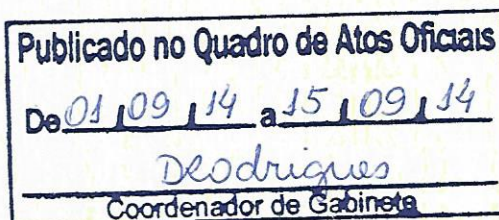 Publicado no Quadro de Atos Oficiais
De 01/09/14 a 15/09/14
DRodrigues
Coordenador de Gabinete